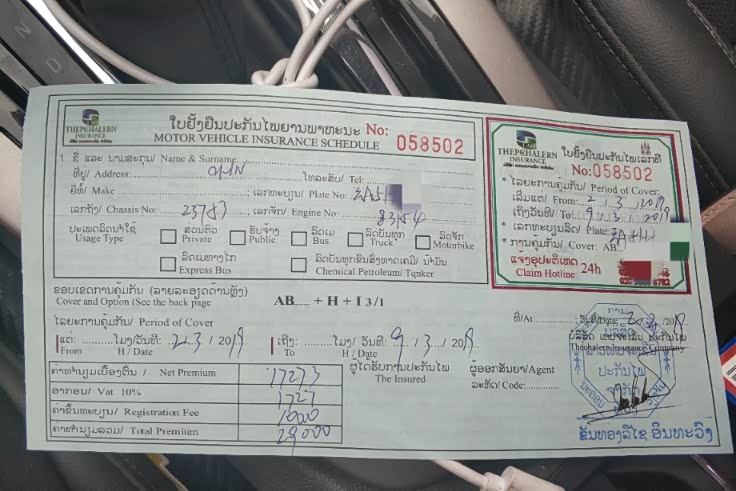 THEPCHALERN
INSURANCE
ໃບຢັ້ງຢືນປະກັນໄພຍານພາຫະນະ No: 058502
MOTOR VEHICLE INSURANCE SCHEDULE
1. ຊື່ ແລະ ນາມສະກຸນ/ Name & Surname
ທີ່ຢູ່/ Address: ໂທລະສັບ/ Tel:
ຍີ່ຫໍ້/ Make ເລກທະບຽນ/ Plate No:
ເລກຖັງ/ Chassis No: 23783 ເລກຈັກ/ Engine No: 8384
ປະເພດລົດນຳໃຊ້
Usage Type
ສ່ວນຕົວ
Private
ຮັບຈ້າງ
Public
ລົດເມ
Bus
ລົດບັນທຸກ
Truck
ລົດຈັກ
Motorbike
ລົດເມທາງໄກ
Express Bus
ລົດບັນທຸກຂົນສົ່ງທາດເຄມີ/ ນ້ຳມັນ
Chemical Petroleum/ Tqnker
LAO
THEPCHALERN
INSURANCE
ໃບຢັ້ງຢືນປະກັນໄພເລກທີ
No: 058502
* ໄລຍະການຄຸ້ມກັນ/ Period of Cover
ເລີ່ມແຕ່/ From: 2 / 3 / 2019
ເຖິງວັນທີ/ To: 9 / 3 / 2019
* ເລກທະບຽນລົດ/ Plate:
* ການຄຸ້ມກັນ/ Cover: AB
ແຈ້ງອຸປະຕິເຫດ
Claim Hotline 24h
ຂອບເຂດການຄຸ້ມກັນ (ລາຍລະອຽດດ້ານຫຼັງ)
Cover and Option (See the back page
AB...... + H + I 3/1
ໄລຍະການຄຸ້ມກັນ/ Period of Cover
ແຕ່: ໂມງ/ວັນທີ: 2 / 3 / 2019 ເຖິງ: ໂມງ/ວັນທີ: 9 / 3 / 2019
From H / Date To H / Date
ທີ່/At ວັນທີ/Date
ບໍລິສັດ ເທບຈະເລີນ ປະກັນໄພ
Thepchalern Insurance Company
ຄ່າທຳນຽມເບື້ອງຕົ້ນ/ Net Premium 17273
ອາກອນ/ Vat 10% 1727
ຄ່າຂຶ້ນທະບຽນ/ Registration Fee
ຄ່າທຳນຽມລວມ/ Total Premium
ຜູ້ໄດ້ຮັບການປະກັນໄພ
The Insured
ຜູ້ອອກສັນຍາ/Agent
ລະຫັດ/ Code:
ຂັນທອງລືໄຊ ອິນທະວົງ